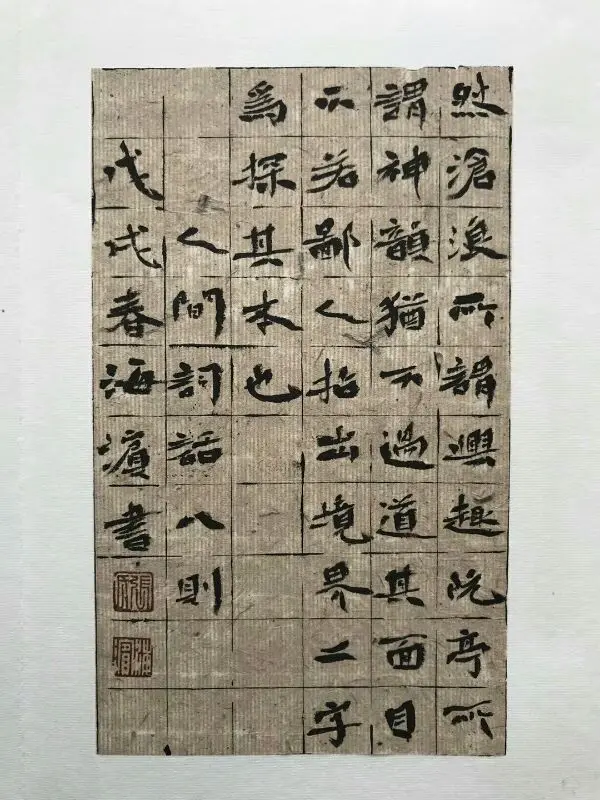 然滄浪所謂興趣阮亭所
謂神韻猶不過道其面目
不若鄙人拈出境界二字
為探其本也
人間詞話八則
戊戌春海濱書